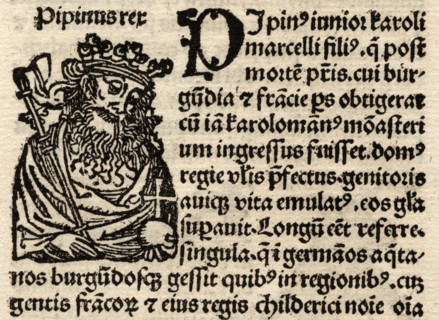 Pipinus rex
Pipinꝰ iunior karoli
marcelli filiꝰ. q̃ post
mortẽ p̃ris. cui bur-
gũdia ⁊ frãcie ps obtigerat
cũ iam karolomanꝰ mõasteri
um ingressus fuisset. domꝰ
regie vl̃is p̃fectus. genitoris
auiqꝫ vita emulatꝰ. eos gl̃a
supauit. Longũ eẽt referre.
singula. q̃ ĩ germanos aq̃ta-
nos burgũdosqꝫ gessit quibꝰ in regionibꝰ. cuꝫ
gentis frãcoꝝ ⁊ eius regis childerici noĩe oĩa